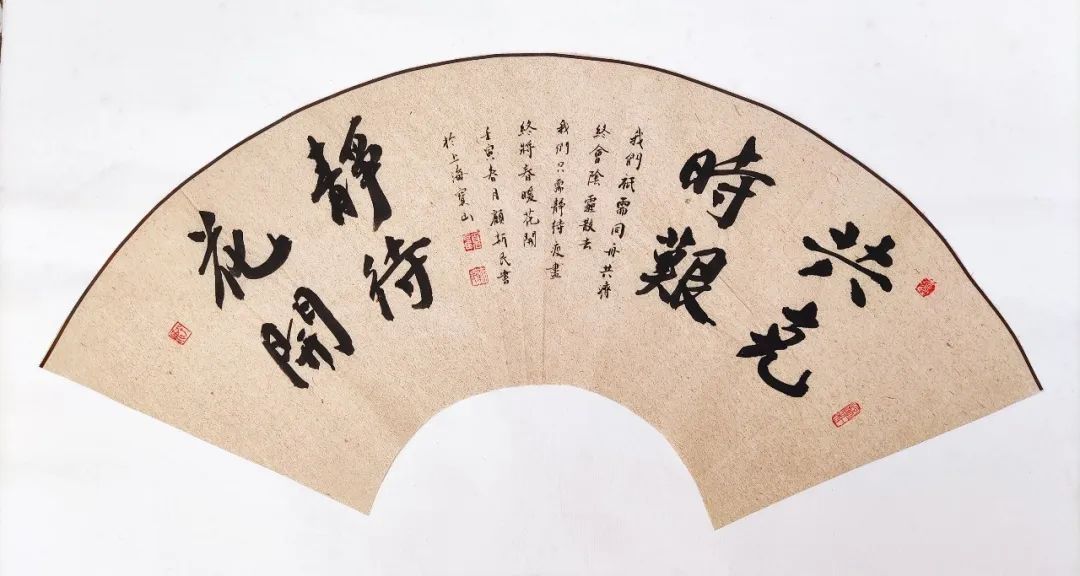 共克
時艱
我們祇需同舟共濟
終會陰霾散去
我們只需靜待疫盡
終將春暖花開
壬寅春月顧民書
於上海寶山
靜待
花開